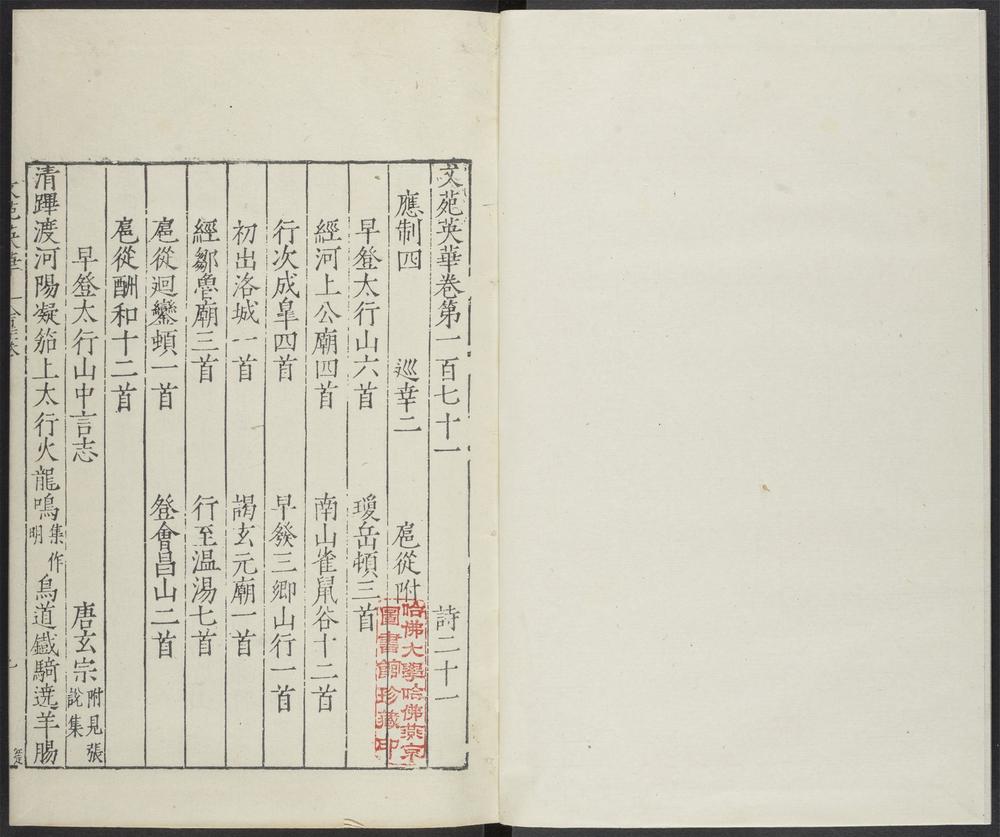 文苑英華卷第一百七十一 詩二十一
應制四 巡幸二 扈從附
早登太行山六首 璦岳頓三首
經河上公廟四首 南山雀鼠谷十二首
行次成臯四首 早發三鄉山行一首
初出洛城一首 謁玄元廟一首
經鄒魯廟三首 行至温湯七首
扈從迴鑾頓一首 登會昌山二首
扈從酬和十二首
早登太行山中言志 唐玄宗 附見張說集
清蹕渡河陽凝笳上太行火龍鳴 集作明 鳥道鐵騎遶羊腸
文苑英華
哈佛大學哈佛燕京
圖書館珍藏印